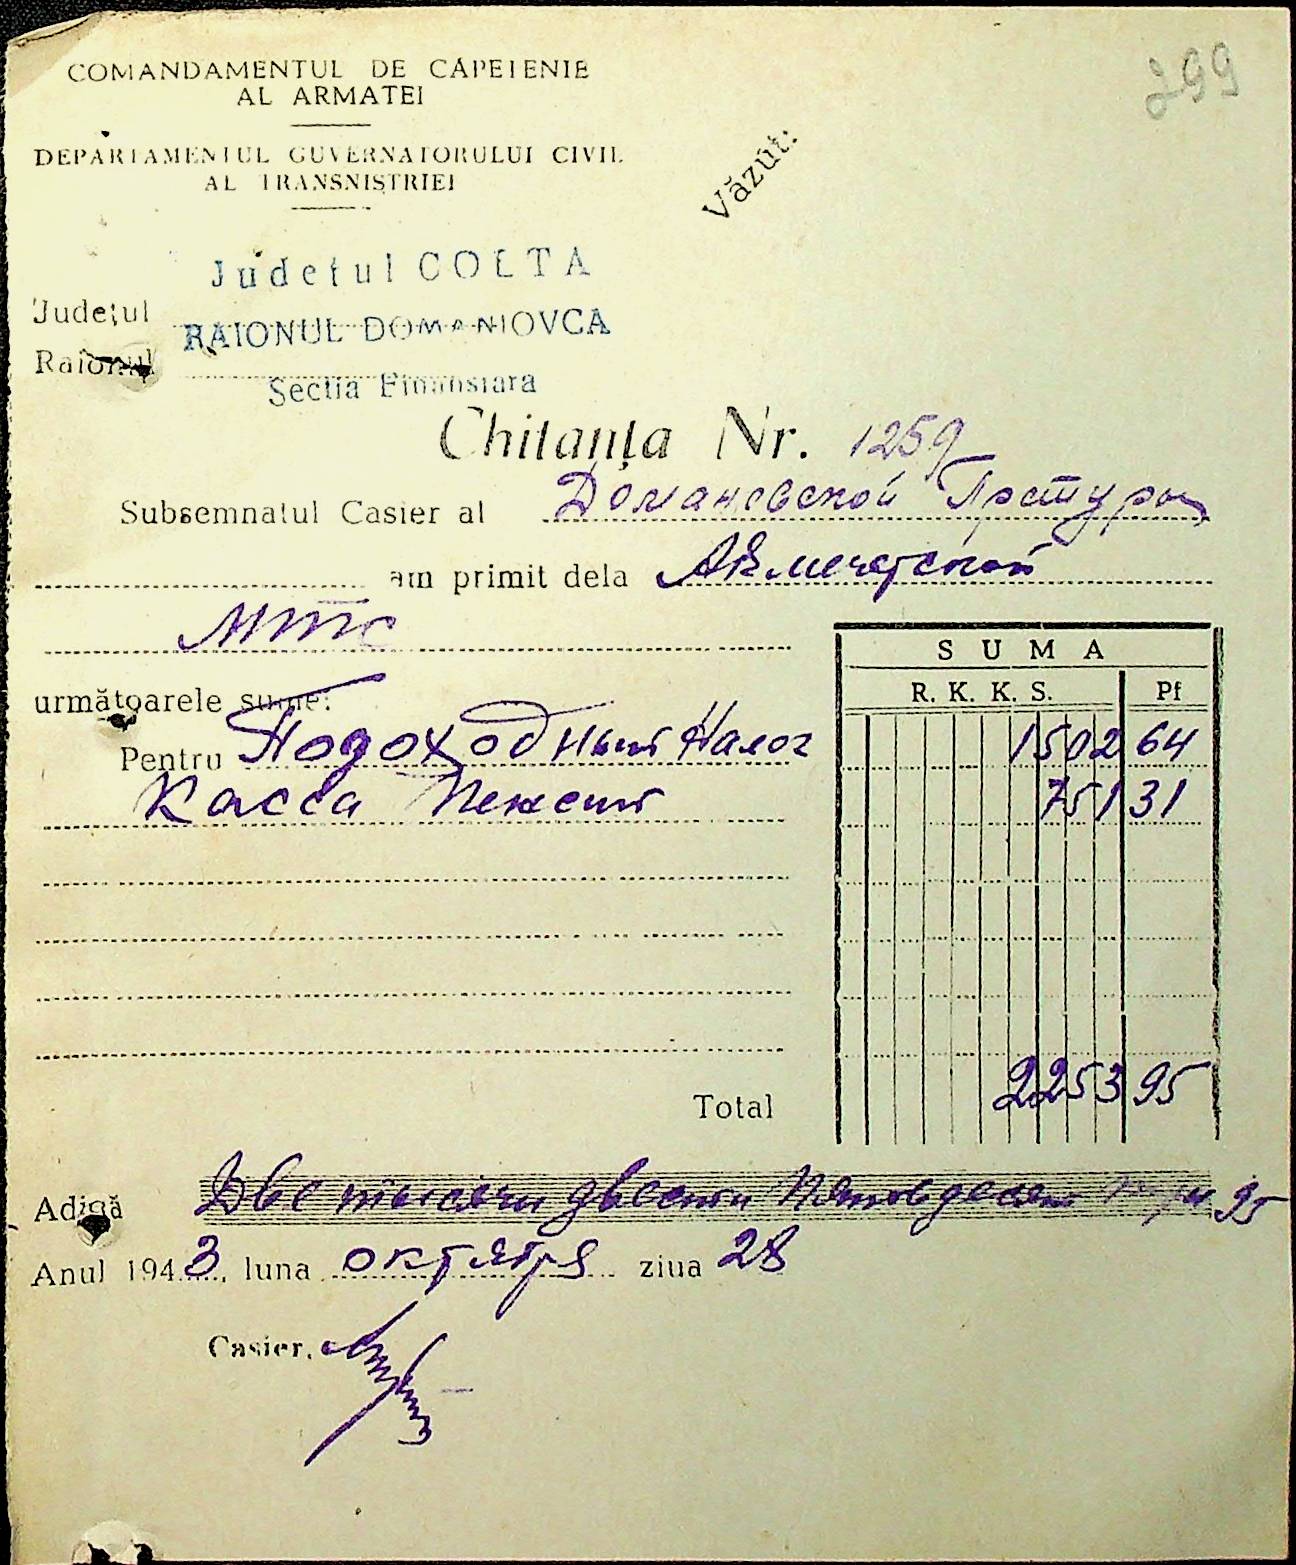 299
COMANDAMENTUL DE CAPETENIE
AL ARMATEI
DEPARTAMENTUL GUVERNATORULUI CIVIL
AL TRANSNISTRIEI
Văzut:
Județul COLTA
Județul
RAIONUL DOMANIOVCA
Raionul
Sectia Finansiara
Chitanța Nr. 1259
Subsemnatul Casier al Доманевской Претуры
am primit dela Акмечетской
МТС
următoarele sume:
SUMA
R. K. K. S. Pf
Pentru Подоходный Налог 1502 64
Касса Пенсий 751 31
Total 2253 95
Adigă Две тысячи двести Пятьдесят три 95
Anul 1943, luna октября ziua 28
Casier,